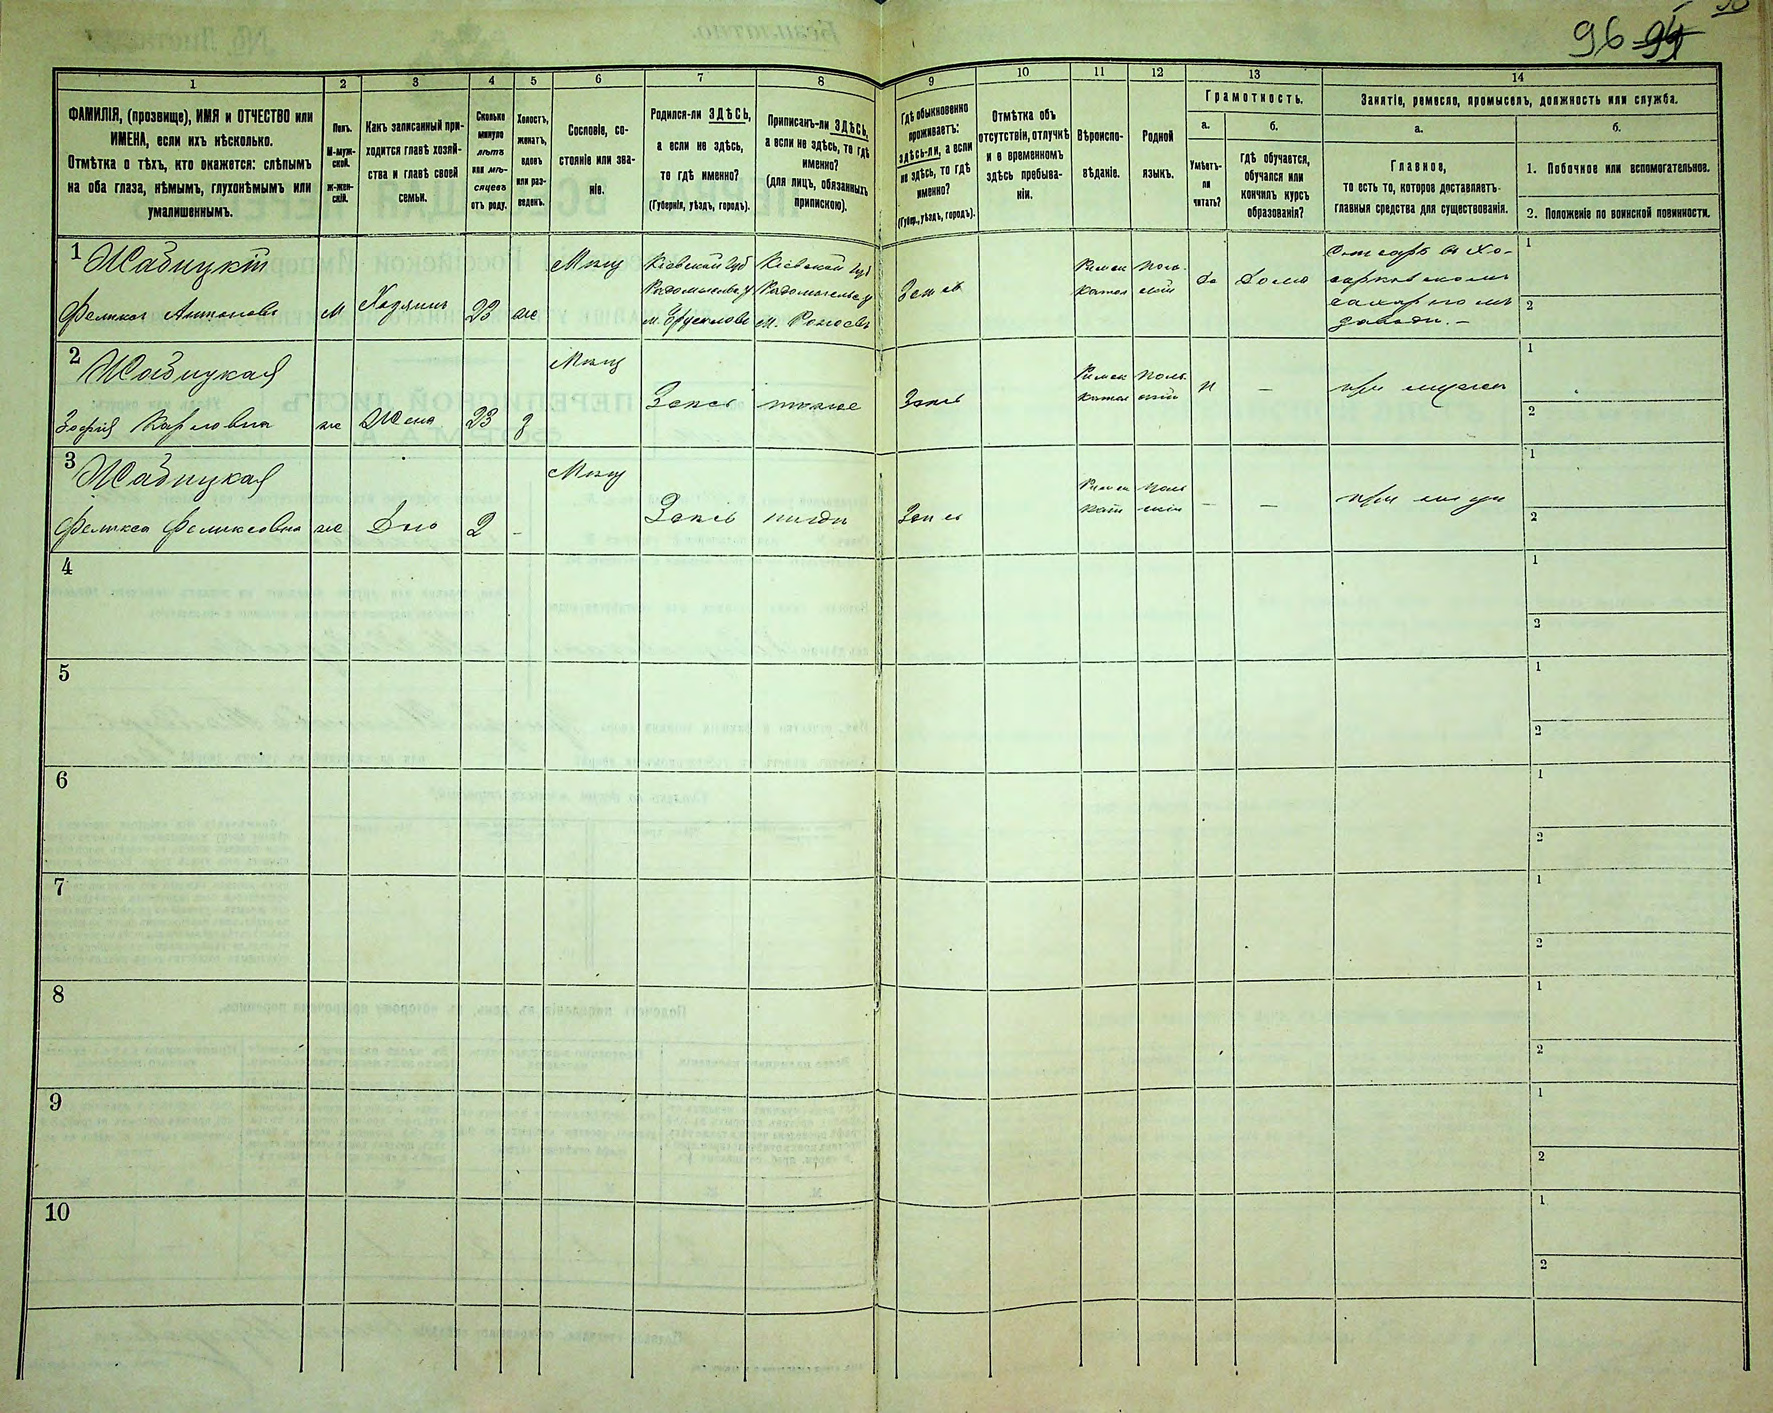 96
1
2
3
4
5
6
7
8
9
10
11
12
13
14
ФАМИЛІЯ, (прозвище), ИМЯ и ОТЧЕСТВО или
ИМЕНА, если ихъ нѣсколько.
Отмѣтка о тѣхъ, кто окажется: слѣпымъ
на оба глаза, нѣмымъ, глухонѣмымъ или
умалишеннымъ.
Полъ.
М-муж-
ской.
ж-жен-
скій.
Какъ записанный при-
ходится главѣ хозяй-
ства и главѣ своей
семьи.
Сколько
минуло
лѣтъ
или мѣ-
сяцевъ
отъ роду.
Холостъ,
женатъ,
вдовъ
или раз-
веденъ.
Сословіе, со-
стояніе или зва-
ніе.
Родился-ли ЗДѢСЬ,
а если не здѣсь,
то гдѣ именно?
(Губернія, уѣздъ, городъ).
Приписанъ-ли ЗДѢСЬ,
а если не здѣсь, то гдѣ
именно?
(для лицъ, обязанныхъ
припискою).
Гдѣ обыкновенно
проживаетъ:
здѣсь-ли, а если
не здѣсь, то гдѣ
именно?
(Губер., уѣздъ, городъ).
Отмѣтка объ
отсутствіи, отлучкѣ
и о временномъ
здѣсь пребыва-
ніи.
Вѣроиспо-
вѣданіе.
Родной
языкъ.
Грамотность.
а.
Умѣетъ-
ли
читать?
б.
гдѣ обучается,
обучался или
кончилъ курсъ
образованія?
Занятіе, ремесло, промыселъ, должность или служба.
а.
Главное,
то есть то, которое доставляетъ
главныя средства для существованія.
б.
1. Побочное или вспомогательное.
2. Положеніе по воинской повинности.
1 Жабицкій
Феликсъ Антоновъ
м
Хозяинъ
23
же
Мѣщ
Кіевской губ
Радомысльс у
Кіевской губ
Радомысльс у
Здѣсь
Римск
катол
поль
скій
да
дома
Слесарь въ Хо-
сахарномъ
заводѣ. –
1
2
2 Жабицкая
Зофія Карловна
же
Жена
23
з
Мѣщ
Здѣсь
Здѣсь
Римск
катол
поль
скій
н
–
при мужѣ
1
2
3 Жабицкая
Феликса Феликсовна
же
Дио
2
–
Мѣщ
Здѣсь
Здѣсь
Римск
кат
поль
скій
–
–
при
1
2
4
1
2
5
1
2
6
1
2
7
1
2
8
1
2
9
1
2
10
1
2